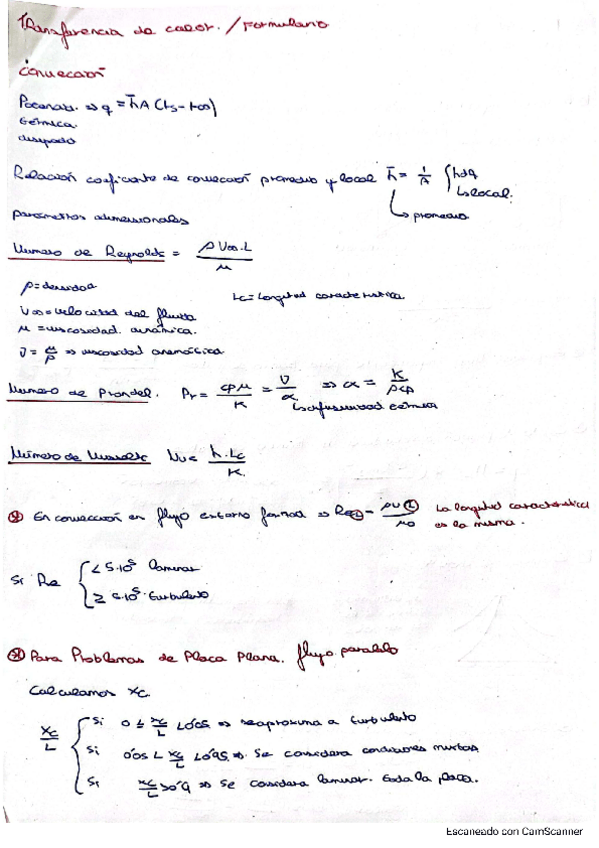 Transferencia de calor. / Formulario
Convección
Potencia ⇒ q = h̄ A (ts - t∞)
térmica
disipada
Relación coeficiente de convección promedio y local h̄ = 1/A ∫ h dA
↳ local.
↳ promedio
parámetros adimensionales
Número de Reynolds = ρ V∞·L / μ
ρ = densidad
Lc = longitud característica
V∞ = velocidad del fluido
μ = viscosidad dinámica.
ν = μ/ρ ⇒ viscosidad cinemática
Número de Prandtl. Pr = cp μ / K = ν / α ⇒ α = K / ρcp
↳ difusividad térmica
Número de Nusselt Nu = h·Lc / K
En convección en flujo externo forzado ⇒ Re L = ρ U L / μ La longitud característica
es la misma.
Si Re { < 5·10⁵ laminar
≥ 5·10⁵ turbulento
Para Problemas de Placa Plana. flujo paralelo
Calculamos xc.
xc/L { Si 0 ≤ xc/L < 0'05 ⇒ se aproxima a turbulento
Si 0'05 < xc/L < 0'95 ⇒ Se considera condiciones mixtas
Si ⇒ Se considera laminar. toda la placa.
Escaneado con CamScanner